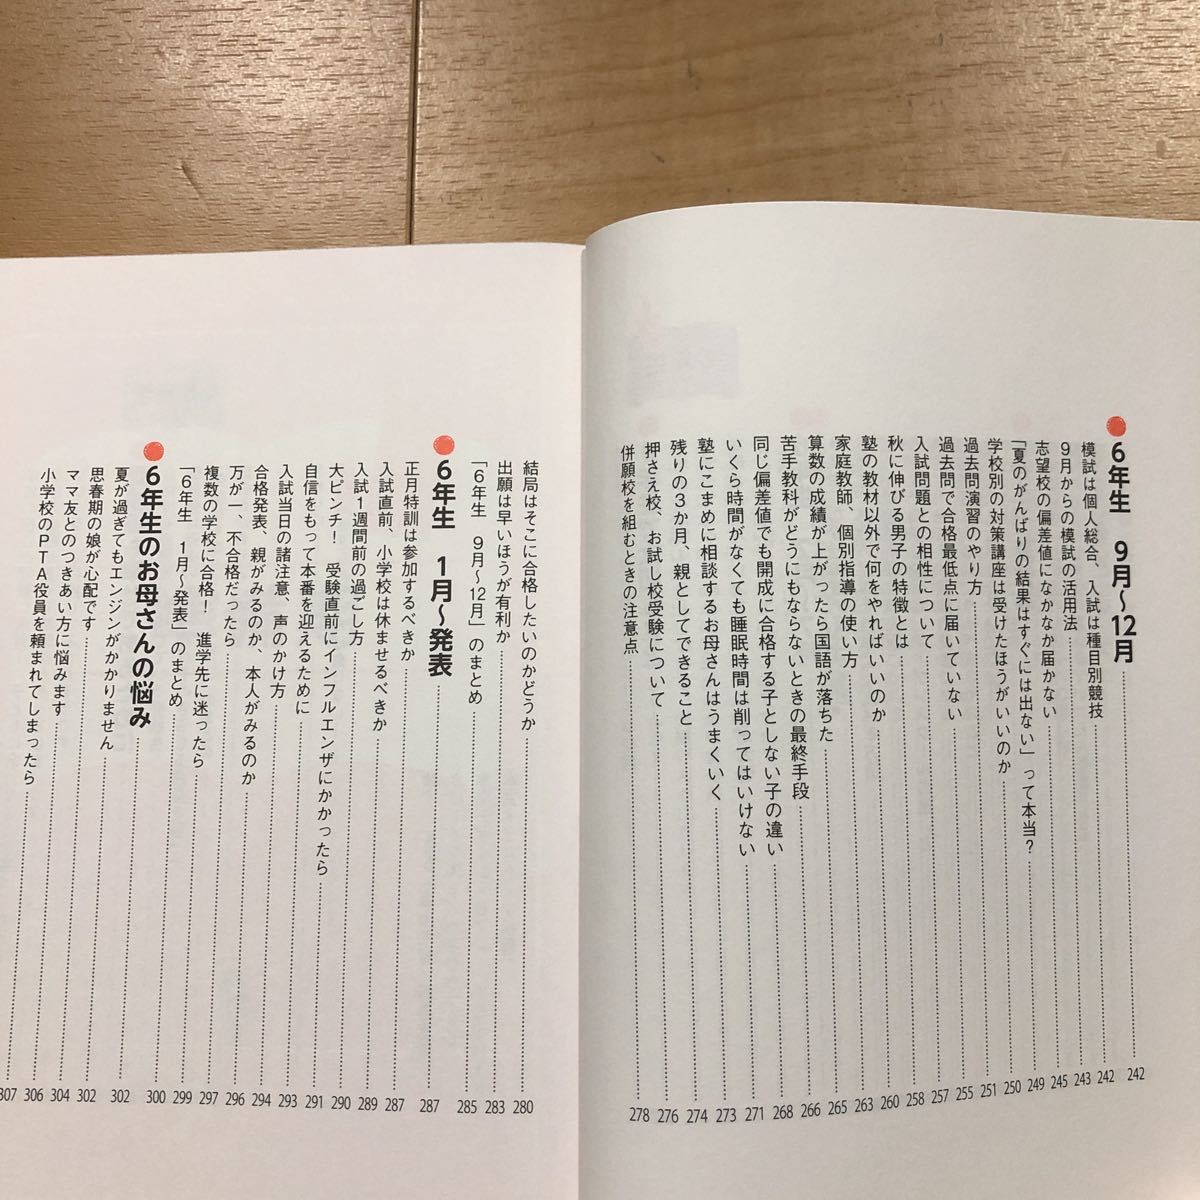 6年生 9月〜12月 242
模試は個人総合、入試は種目別競技 242
9月からの模試の活用法 243
志望校の偏差値になかなか届かない 245
「夏のがんばりの結果はすぐには出ない」って本当? 249
学校別の対策講座は受けたほうがいいのか 250
過去問演習のやり方 251
過去問で合格最低点に届いていない 255
入試問題との相性について 257
秋に伸びる男子の特徴とは 258
塾の教材以外で何をやればいいのか 260
家庭教師、個別指導の使い方 263
算数の成績が上がったら国語が落ちた 265
苦手教科がどうにもならないときの最終手段 266
同じ偏差値でも開成に合格する子としない子の違い 268
いくら時間がなくても睡眠時間は削ってはいけない 271
塾にこまめに相談するお母さんはうまくいく 273
残りの3か月、親としてできること 274
押さえ校、お試し校受験について 276
併願校を組むときの注意点 278
結局はそこに合格したいのかどうか 280
出願は早いほうが有利か 283
「6年生 9月〜12月」のまとめ 285
6年生 1月〜発表 287
正月特訓は参加するべきか 287
入試直前、小学校は休ませるべきか 289
入試1週間前の過ごし方 290
大ピンチ! 受験直前にインフルエンザにかかったら 291
自信をもって本番を迎えるために 293
入試当日の諸注意、声のかけ方 294
合格発表、親がみるのか、本人がみるのか 296
万が一、不合格だったら 297
複数の学校に合格! 進学先に迷ったら 299
「6年生 1月〜発表」のまとめ 300
6年生のお母さんの悩み 302
夏が過ぎてもエンジンがかかりません 302
思春期の娘が心配です 304
ママ友とのつきあい方に悩みます 306
小学校のPTA役員を頼まれてしまったら 307